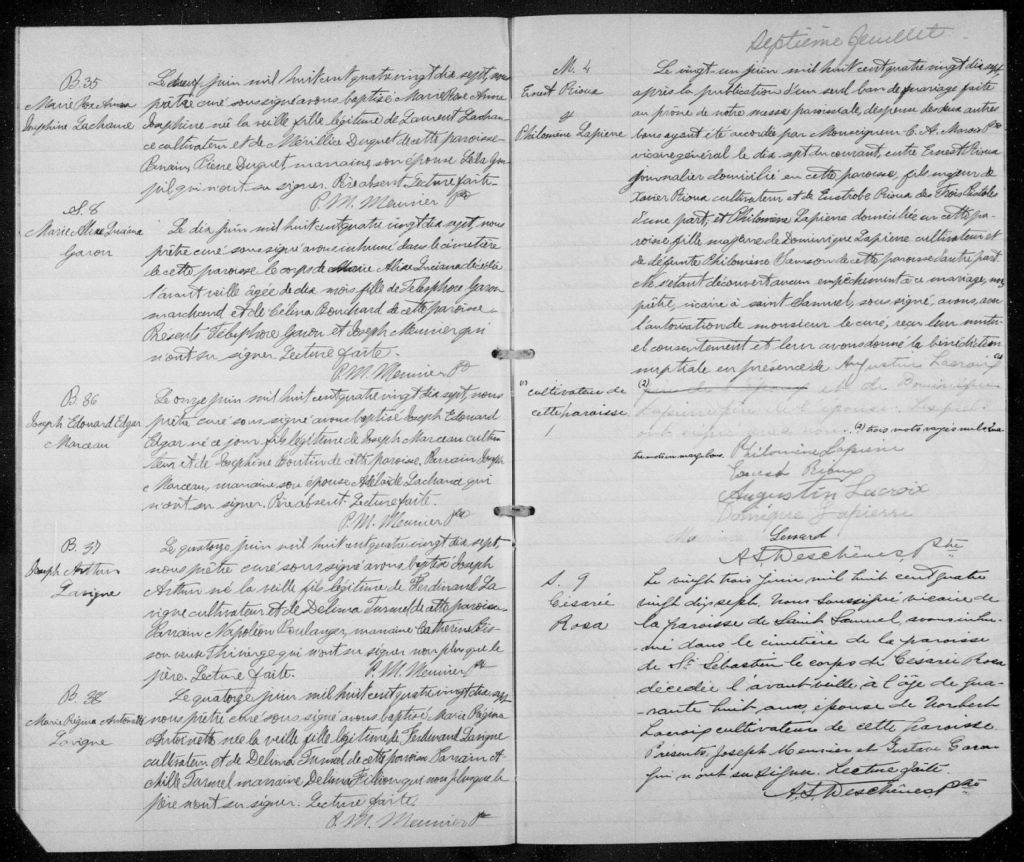 B. 35
Marie Rose Anna
Josephine Lachance
Le deux juin mil huit cent quatre vingt dix sept, nous
prêtre curé soussigné avons baptisé Marie Rose Anna
Josephine né la veille fille légitime de Laurent Lachan-
ce cultivateur et de Mérillice Duquet de cette paroisse
Parrain, Pierre Duquet, marraine, son épouse
qui n'ont su signer. Père absent. Lecture faite.
P. M. Meunier Ptre
S. 8
Marie Alice Luciana
Garon
Le dix juin mil huit cent quatre vingt dix sept, nous
prêtre curé soussigné avons inhumé dans le cimetière
de cette paroisse le corps de Marie Alice Luciana décédée
l'avant veille âgée de dix mois fille de Télesphore Garon
marchand et de Célina Bouchard de cette paroisse.
Présents Télesphore Garon et Joseph Meunier qui
n'ont su signer. Lecture faite.
P. M. Meunier Ptre
B. 36
Joseph Edouard Edgar
Marceau
Le onze juin mil huit cent quatre vingt dix sept, nous
prêtre curé soussigné avons baptisé Joseph Edouard
Edgar né ce jour fils légitime de Joseph Marceau cultiva-
teur et de Josephine Boutin de cette paroisse. Parrain Joseph
Marceau, marraine son épouse Adelaide Lachance qui
n'ont su signer. Père absent. Lecture faite.
P. M. Meunier Ptre
B. 37
Joseph Arthur
Lavigne
Le quatorze juin mil huit cent quatre vingt dix sept,
nous prêtre curé soussigné avons baptisé Joseph
Arthur né la veille fils légitime de Ferdinand La-
vigne cultivateur et de Delima Turmel de cette paroisse.
Parrain Napoléon Boulanger, marraine Catherine
veuve Thivierge qui n'ont su signer non plus que le
père. Lecture faite. P. M. Meunier Ptre
B. 38
Marie Régina Antoinette
Lavigne
Le quatorze juin mil huit cent quatre vingt dix sept
nous prêtre curé soussigné avons baptisé Marie Régina
Antoinette née la veille fille légitime de Ferdinand Lavigne
cultivateur et de Delima Turmel de cette paroisse Parrain A-
chille Turmel marraine Delima Filion qui non plus que le
père n'ont su signer. Lecture faite.
P. M. Meunier Ptre
Septième feuillet.
M. 4
Ernest Rioux
&
Philomène Lapierre
Le vingt un juin mil huit cent quatre vingt dix sept
après la publication d'un seul ban de mariage faite
au prône de notre messe paroissiale, dispense de deux autres
bans ayant été accordée par Monseigneur C. A. Marois Ptre
vicaire général le dix sept du courant, entre Ernest Rioux
journalier domicilié en cette paroisse, fils majeur de
Xavier Rioux cultivateur et de Eustrobe Rioux des Trois Pistoles
d'une part; et Philomène Lapierre domiciliée en cette pa-
roisse fille majeure de Dominique Lapierre cultivateur et
de défunte Philomène Samson de cette paroisse d'autre part.
Ne s'étant découvert aucun empêchement à ce mariage, nous
prêtre, vicaire à saint Samuel, soussigné, avons, avec
l'autorisation de monsieur le curé, reçu leur mutu-
el consentement et leur avons donné la bénédiction
nuptiale en présence de Augustin Lacroix (1)
(1)
cultivateur de
cette paroisse
(2) et de Dominique
Lapierre père de l'épouse lesquels
ont signé avec nous. (2) trois mots rayés nuls
Philomène Lapierre
Ernest Rioux
Augustin Lacroix
Dominique Lapierre
A. S. Deschênes, Ptre
S. 9
Césarie
Rosa
Le vingt trois Juin mil huit cent quatre
vingt dix sept. Nous soussigné vicaire de
la paroisse de Saint Samuel, avons inhu-
mé dans le cimetière de la paroisse
de St. Sébastien le corps de Césarie Rosa
décédée l'avant veille à l'âge de qua-
rante huit ans, épouse de Norbert
Lacroix cultivateur de cette paroisse.
Présents, Joseph Meunier et Gustave Garon
qui n'ont su signer. Lecture faite.
A. S. Deschênes, Ptre